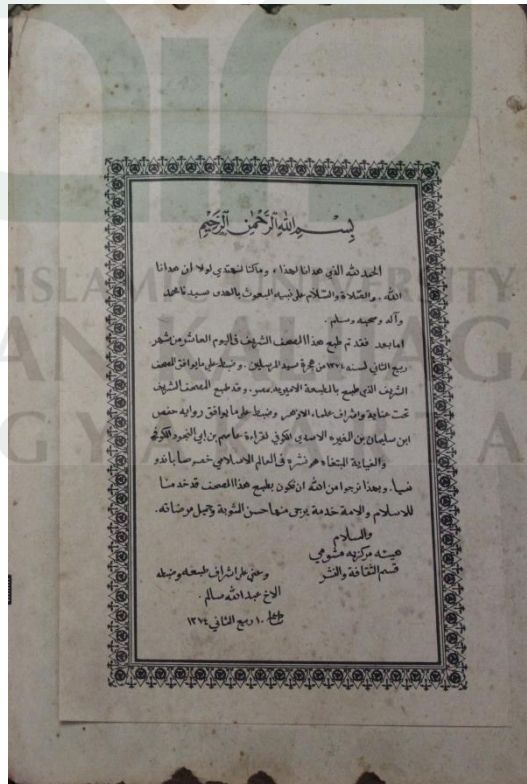 بسم الله الرحمن الرحيم
الحمد لله الذي هدانا لهذا، وماكنا لنهتدي لولا ان هدانا
الله. والصلاة والسلام على نبيه المبعوث بالهدى سيدنا محمد
وآله وصحبه وسلم.
اما بعد فقد تم طبع هذا المصحف الشريف فى اليوم العاشر من شهر
ربيع الثاني لسنه ١٣٧٤ من هجرة سيد المرسلين. وضبط على ما يوافق المصحف
الشريف الذي طبع بالمطبعة الاميريه بمصر. وقد طبع المصحف الشريف
تحت عناية واشراف علماء الازهر وضبط على ما يوافق رواية حفص
ابن سليمان بن المغيره الاسدي الكوفي لقراءة عاصم بن ابي النجود الكوفي
والغاية المبتغاه هو نشره فى العالم الاسلامي خصوصا باندو
نسيا. وبهذا نرجوا من الله ان نكون بطبع هذا المصحف قد خدمنا
للاسلام والامة خدمة يرجى منها حسن المثوبة وجميل مرضاته.
والسلام
هيئه مركزيه مشومي
قسم الثقافة والنشر
وعنى على اشراف طبعه وضبطه
الاخ عبد الله سالم.
١٠ ربيع الثاني ١٣٧٤
ISLAMIC UNIVERSITY